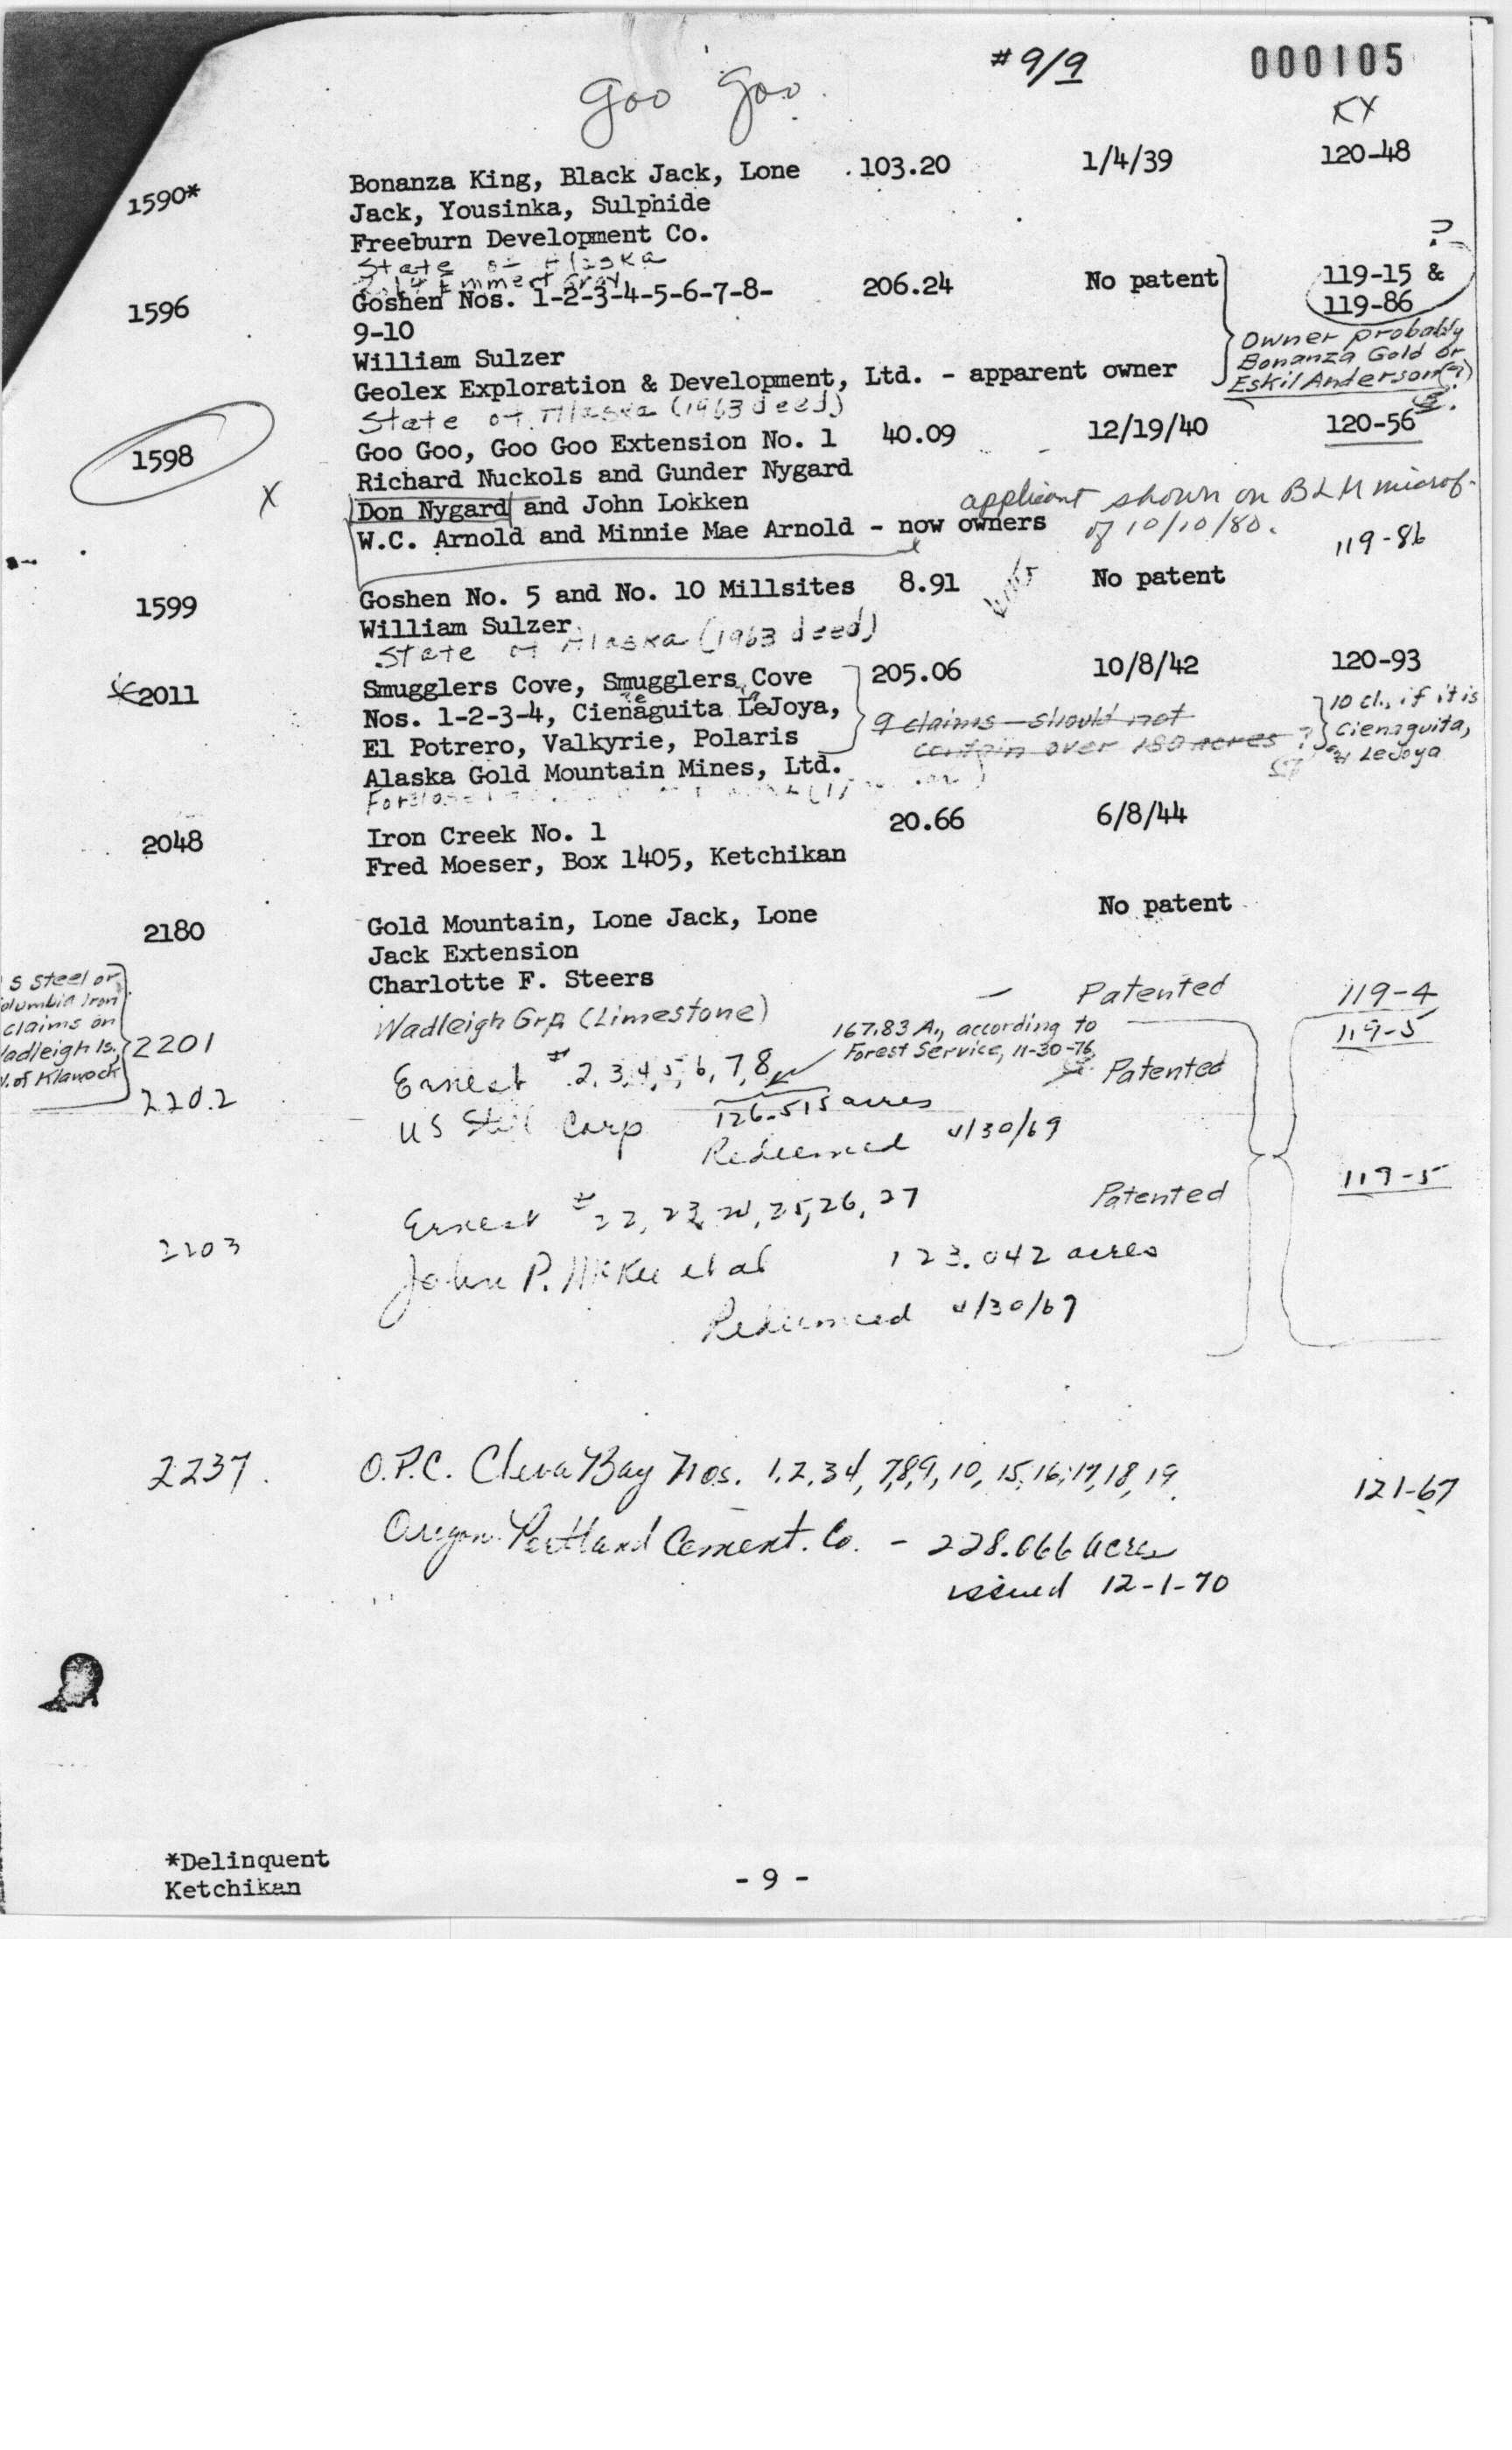 #9/9 000105
Goo Goo
KX
1590* Bonanza King, Black Jack, Lone 103.20 1/4/39 120-48
Jack, Yousinka, Sulphide
Freeburn Development Co.
State of Alaska
Emmert Gray
?
1596 Goshen Nos. 1-2-3-4-5-6-7-8- 206.24 No patent 119-15 &
9-10 119-86
William Sulzer
Geolex Exploration & Development, Ltd. - apparent owner
Owner probably
Bonanza Gold or
Eskil Anderson(?)
State of Alaska (1963 deed)
1598 Goo Goo, Goo Goo Extension No. 1 40.09 12/19/40 120-56
X Richard Nuckols and Gunder Nygard
Don Nygard and John Lokken
W.C. Arnold and Minnie Mae Arnold - now owners
applicant shown on BLM microf.
of 10/10/80.
119-86
1599 Goshen No. 5 and No. 10 Millsites 8.91 No patent
William Sulzer
State of Alaska (1963 deed)
2011 Smugglers Cove, Smugglers Cove 205.06 10/8/42 120-93
Nos. 1-2-3-4, Cienaguita LeJoya,
El Potrero, Valkyrie, Polaris
Alaska Gold Mountain Mines, Ltd.
9 claims - should not
contain over 180 acres ?
10 cl., if it is
Cienaguita,
& LeJoya
2048 Iron Creek No. 1 20.66 6/8/44
Fred Moeser, Box 1405, Ketchikan
2180 Gold Mountain, Lone Jack, Lone No patent
Jack Extension
Charlotte F. Steers
S Steel or
olumbia Iron
claims on
adleigh Is.,
. of Klawock
Wadleigh Grp (Limestone) - Patented 119-4
2201 167.83 A., according to 119-5
Forest Service, 11-30-76
2202 Ernest # 2, 3, 4, 5, 6, 7, 8 Patented
US Steel Corp 126.515 acres
Redeemed 4/30/69
2203 Ernest # 22, 23, 24, 25, 26, 27 Patented 119-5
John P. McKee et al 123.042 acres
Redeemed 4/30/69
2237. O.P.C. Bay Nos. 1,2,3,4,7,8,9,10,15,16,17,18,19 121-67
Oregon Portland Cement. Co. - 228.066 acres
issued 12-1-70
*Delinquent
Ketchikan
- 9 -